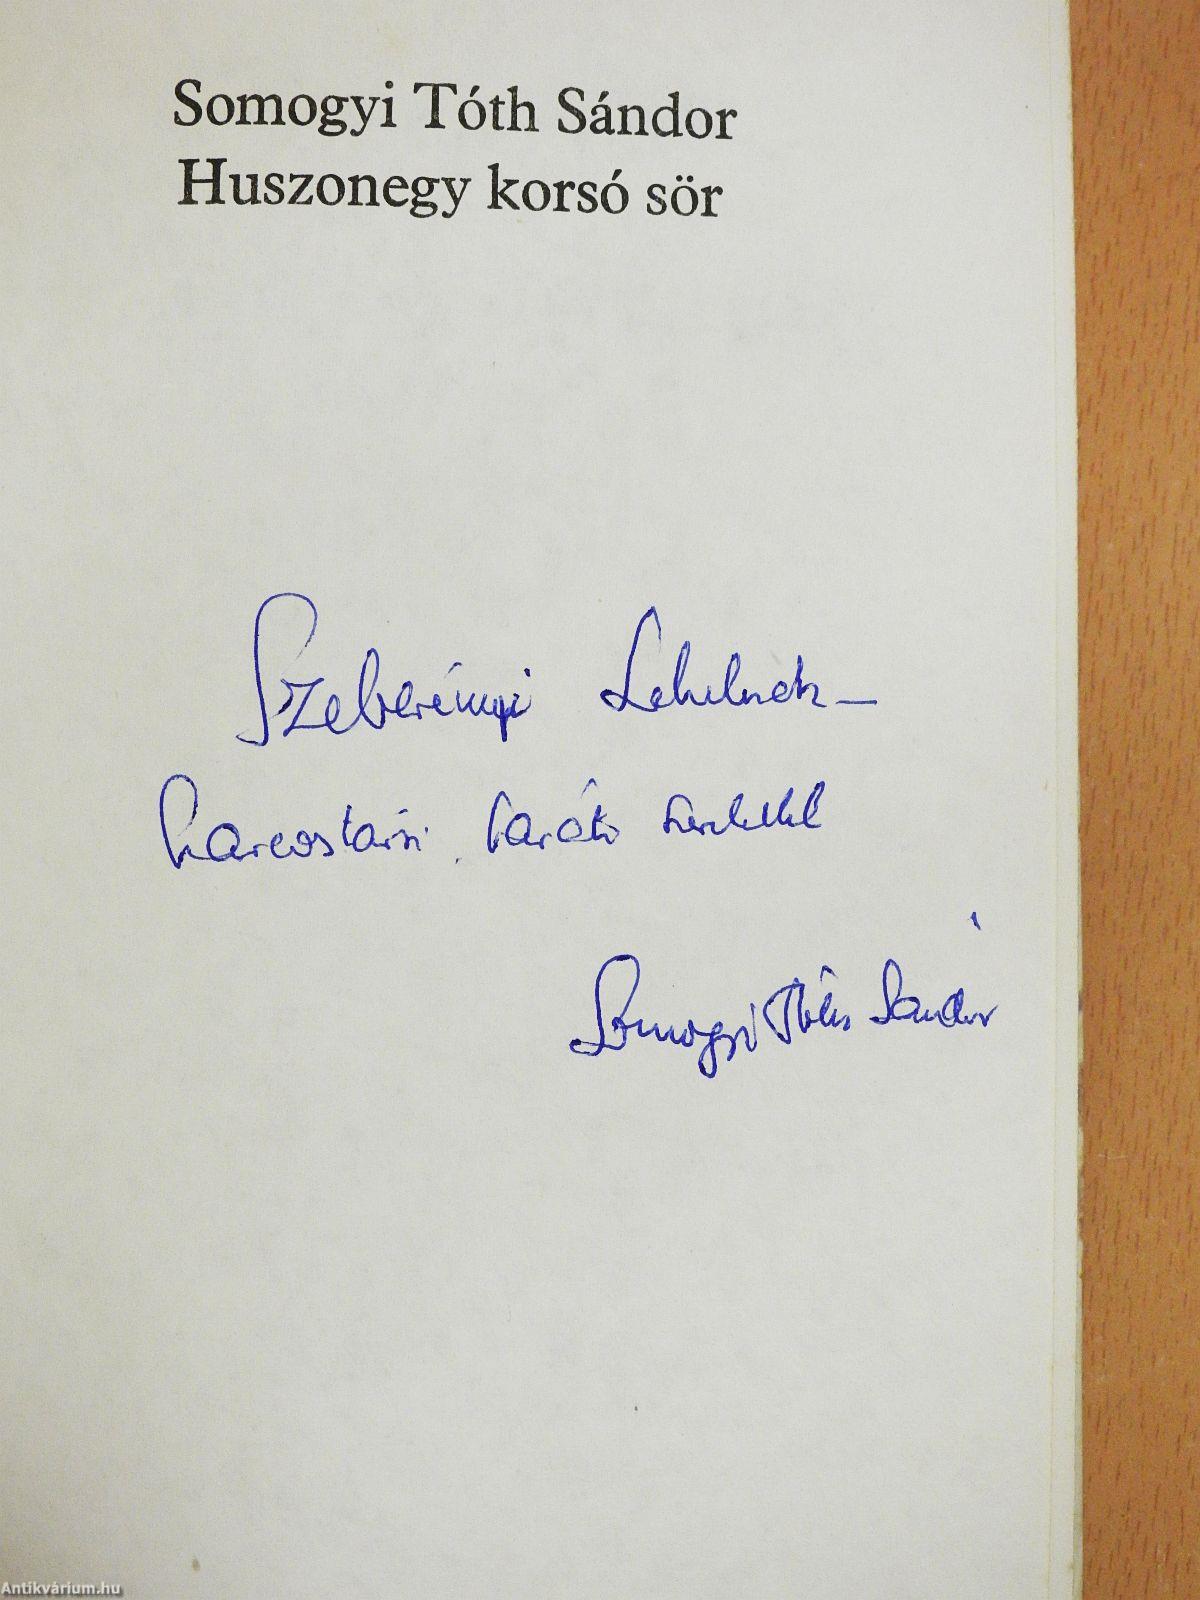 Somogyi Tóth Sándor
Huszonegy korsó sör
Szeberényi Lehelnek –
harcostársi, baráti szeretettel
Somogyi Tóth Sándor
Antikvárium.hu